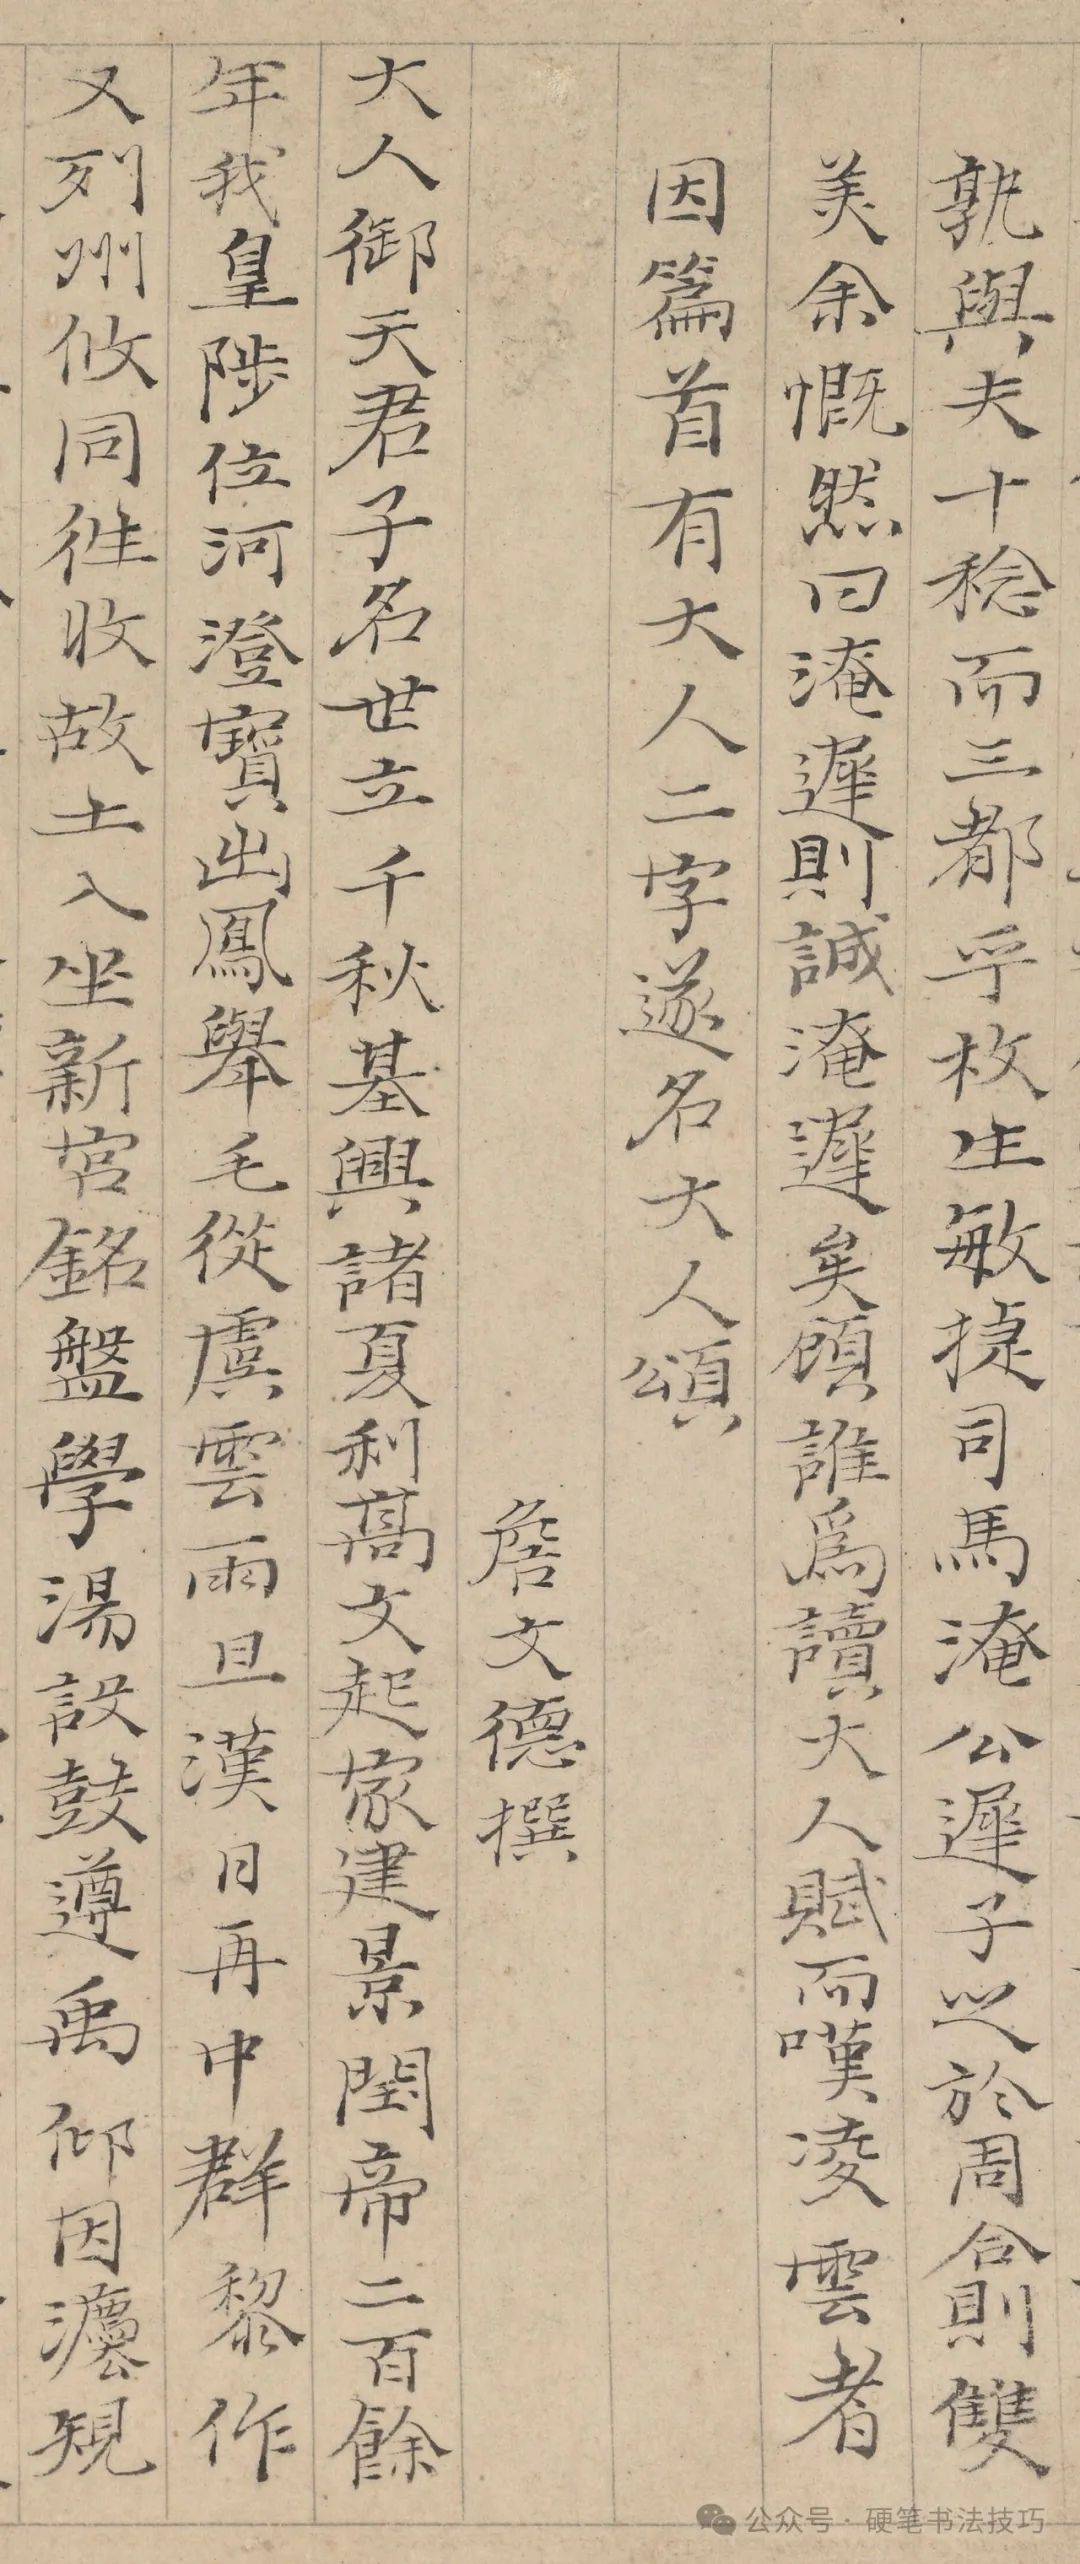 孰與夫十稔而三都乎枚生敏捷司馬淹公遲子之於周合則雙
美余慨然曰淹遲則誠淹遲矣顧誰為讀大人賦而嘆凌雲者
因篇首有大人二字遂名大人頌
詹文德撰
大人御天君子名世立千秋基興諸夏利高文起家建景閏帝二百餘
年我皇陟位河澄寶出鳳舉毛從虞雲雨旦漢日再中群黎作
又列州攸同徃收故土入坐新宫銘盤學湯設鼓遵禹仰因灋規
公众号·硬笔书法技巧